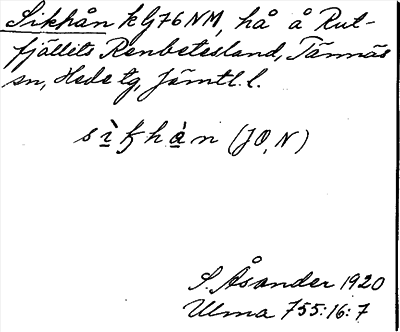 Sikhån k Gj76NM, hå å Rut-
fjällets Renbetesland, Tännäs
sn, Hede tg, Jämtl. l.
sìkhàn (JO, N)
S. Åsander 1920
Ulma 755:16:7